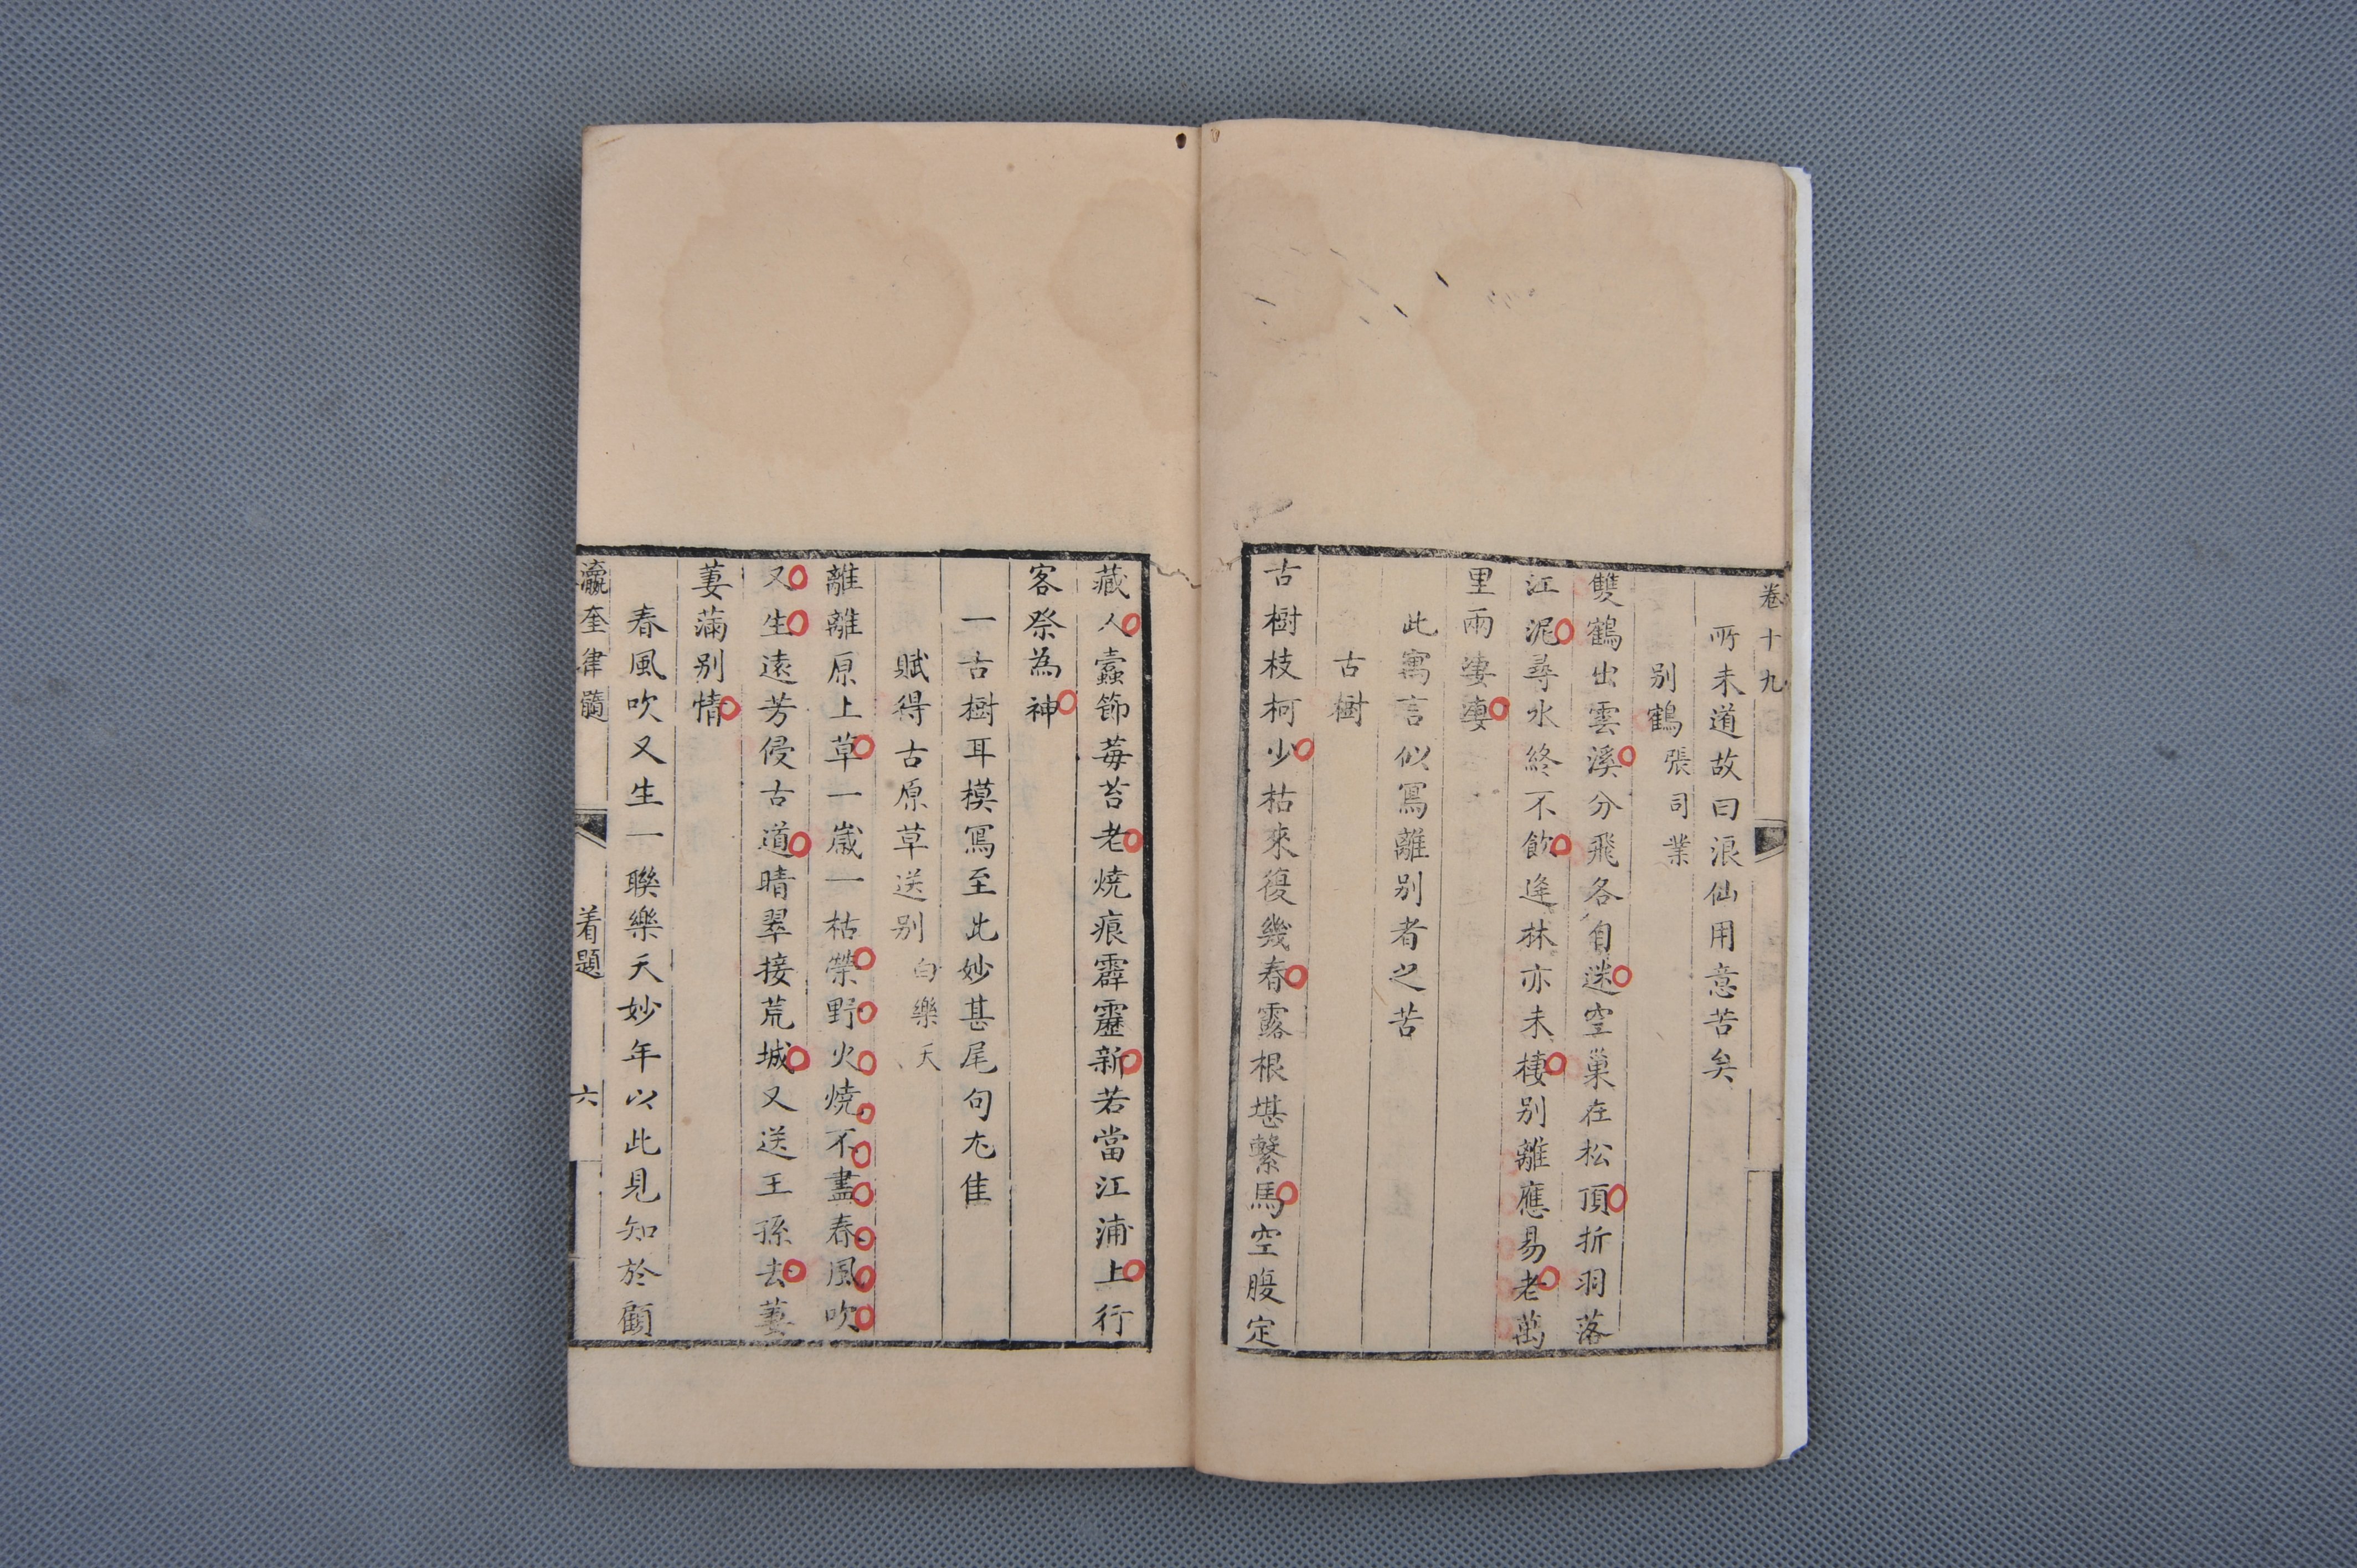 卷十九
所未道故曰浪仙用意苦矣
别鶴 張司業
雙鶴出雲溪分飛各自迷空巢在松頂折羽落
江泥尋水終不飲逢林亦未棲别離應易老萬
里兩淒淒
此寓言似寫離别者之苦
古樹
古樹枝柯少枯來復幾春露根堪繫馬空腹定
藏人蠹節莓苔老燒痕霹靂新若當江浦上行
客祭為神
一古樹耳模寫至此妙甚尾句尤佳
賦得古原草送别 白樂天
離離原上草一嵗一枯榮野火燒不盡春風吹
又生遠芳侵古道晴翠接荒城又送王孫去萋
萋滿别情
春風吹又生一聯樂天妙年以此見知於顧
瀛奎律髓 着題 六